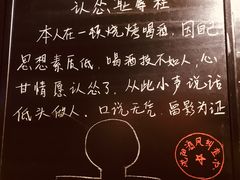 认怂耻辱柱
本人在一顿烧烤喝酒，因自己
思想素质低，喝酒技不如人，心
甘情愿认怂了，从此小声说话
低头做人，口说无凭，留影为证